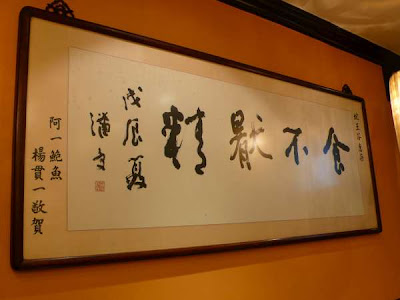 食不厭精
戊辰夏
阿一鮑魚
楊貫一敬賀